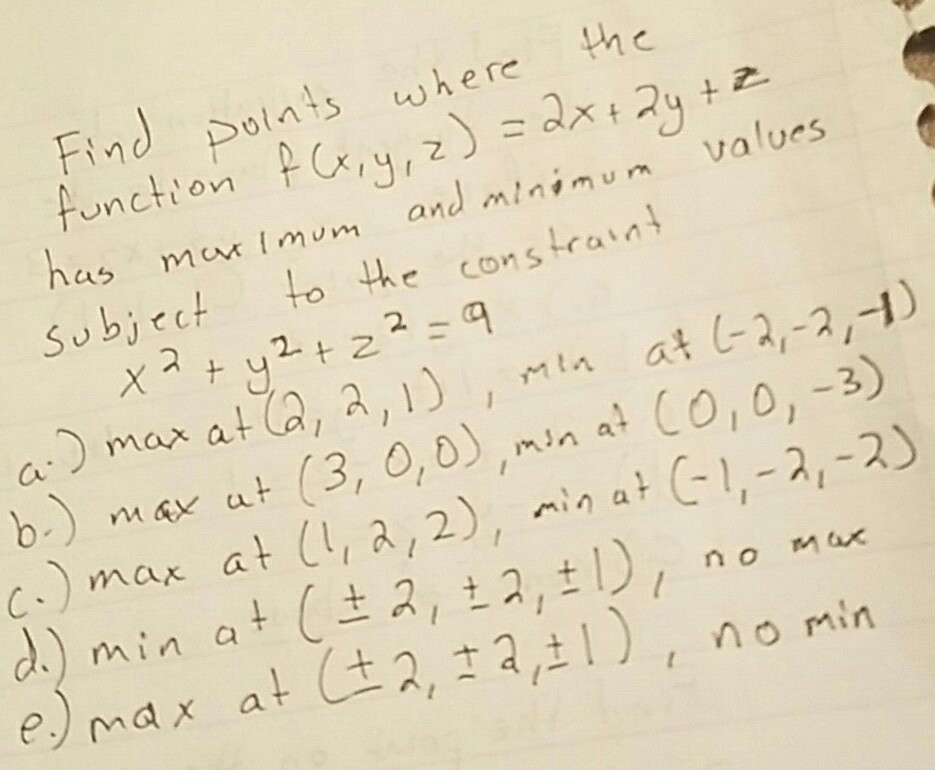 Find points where the
function f(x,y,z) = 2x+2y+z
has maximum and minimum values
subject to the constraint
x² + y² + z² = 9
a.) max at (2, 2, 1), min at (-2,-2,-1)
b.) max at (3, 0,0), min at (0,0,-3)
c.) max at (1, 2, 2), min at (-1,-2,-2)
d.) min at (± 2, ± 2, ± 1), no max
e.) max at (± 2, ± 2, ± 1), no min